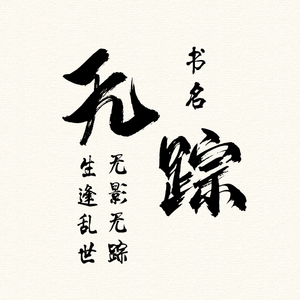 书名
无踪
无影无踪
生逢乱世